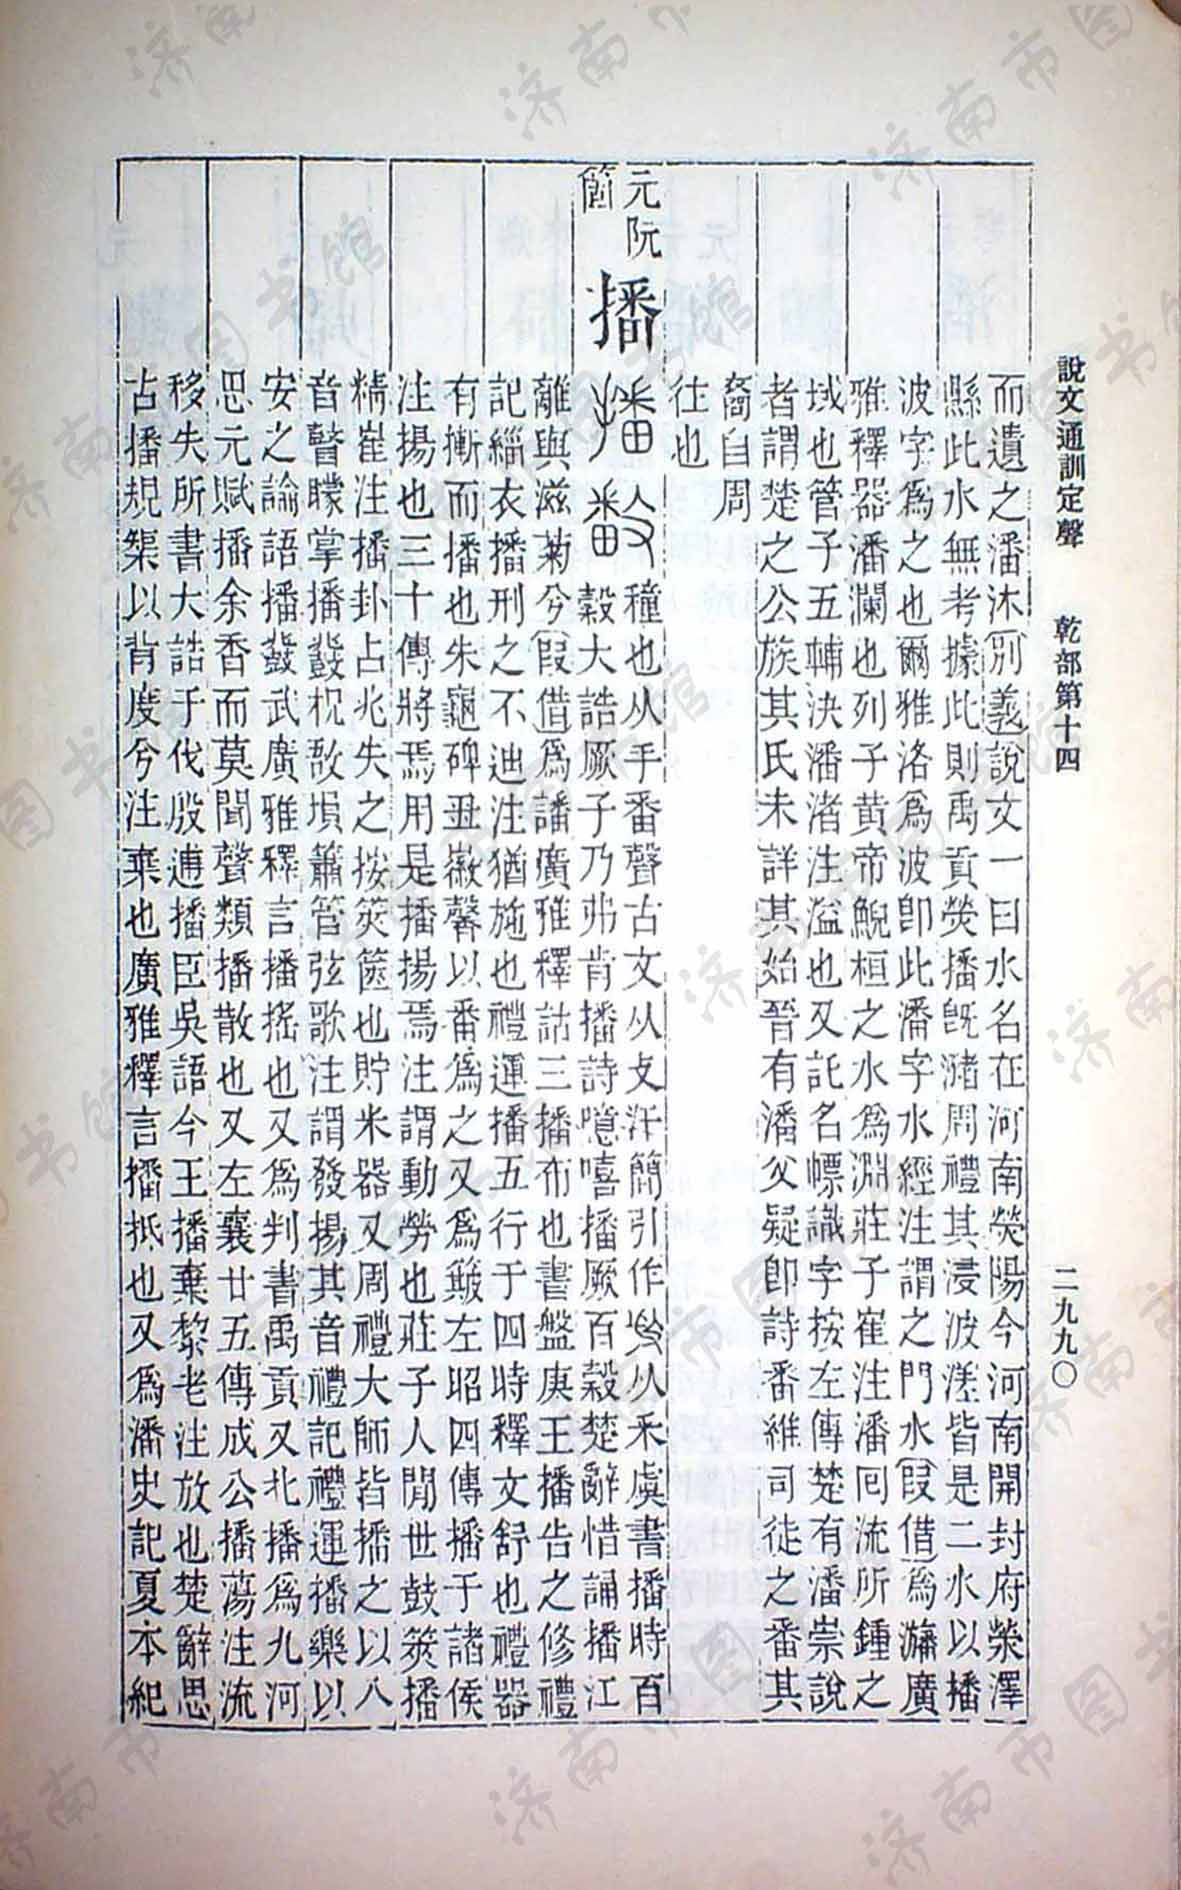 說文通訓定聲　乾部第十四　二九九〇
而遺之潘沐別義說文一曰水名在河南熒陽今河南開封府榮澤
縣此水無考據此則禹貢熒播旣瀦周禮其浸波溠皆是二水以播
波字爲之也爾雅洛爲波卽此潘字水經注謂之門水叚借爲瀿廣
雅釋器潘瀾也列子黃帝鯢桓之水爲淵莊子崔注潘回流所鍾之
域也管子五輔決潘渚注溢也又託名幖識字按左傳楚有潘崇說
者謂楚之公族其氏未詳其始晉有潘父疑卽詩番維司徒之番其
裔自周
往也
元阮
箇
播
穜也从手番聲古文从攴汗簡引作
从釆虞書播時百
穀大誥厥子乃弗肯播詩噫嘻播厥百穀楚辭惜誦播江
離與滋菊兮叚借爲譒廣雅釋詁三播布也書盤庚王播告之修禮
記緇衣播刑之不迪注猶施也禮運播五行于四時釋文舒也禮器
有摲而播也朱龜碑丑徽馨以番爲之又爲簸左昭四傳播于諸侯
注揚也三十傳將焉用是播揚焉注謂動勞也莊子人閒世鼓筴播
精崔注播卦占兆失之按筴箧也貯米器又周禮大師皆播之以八
音瞽矇掌播鼗柷敔塤簫管弦歌注謂發揚其音禮記禮運播樂以
安之論語播鼗武廣雅釋言播搖也又爲判書禹貢又北播爲九河
思元賦播余香而莫聞聲類播散也又左襄廿五傳成公播蕩注流
移失所書大誥于伐殷逋播臣吳語今王播棄黎老注放也楚辭思
古播規榘以背度兮注棄也廣雅釋言播抵也又爲潘史記夏本紀